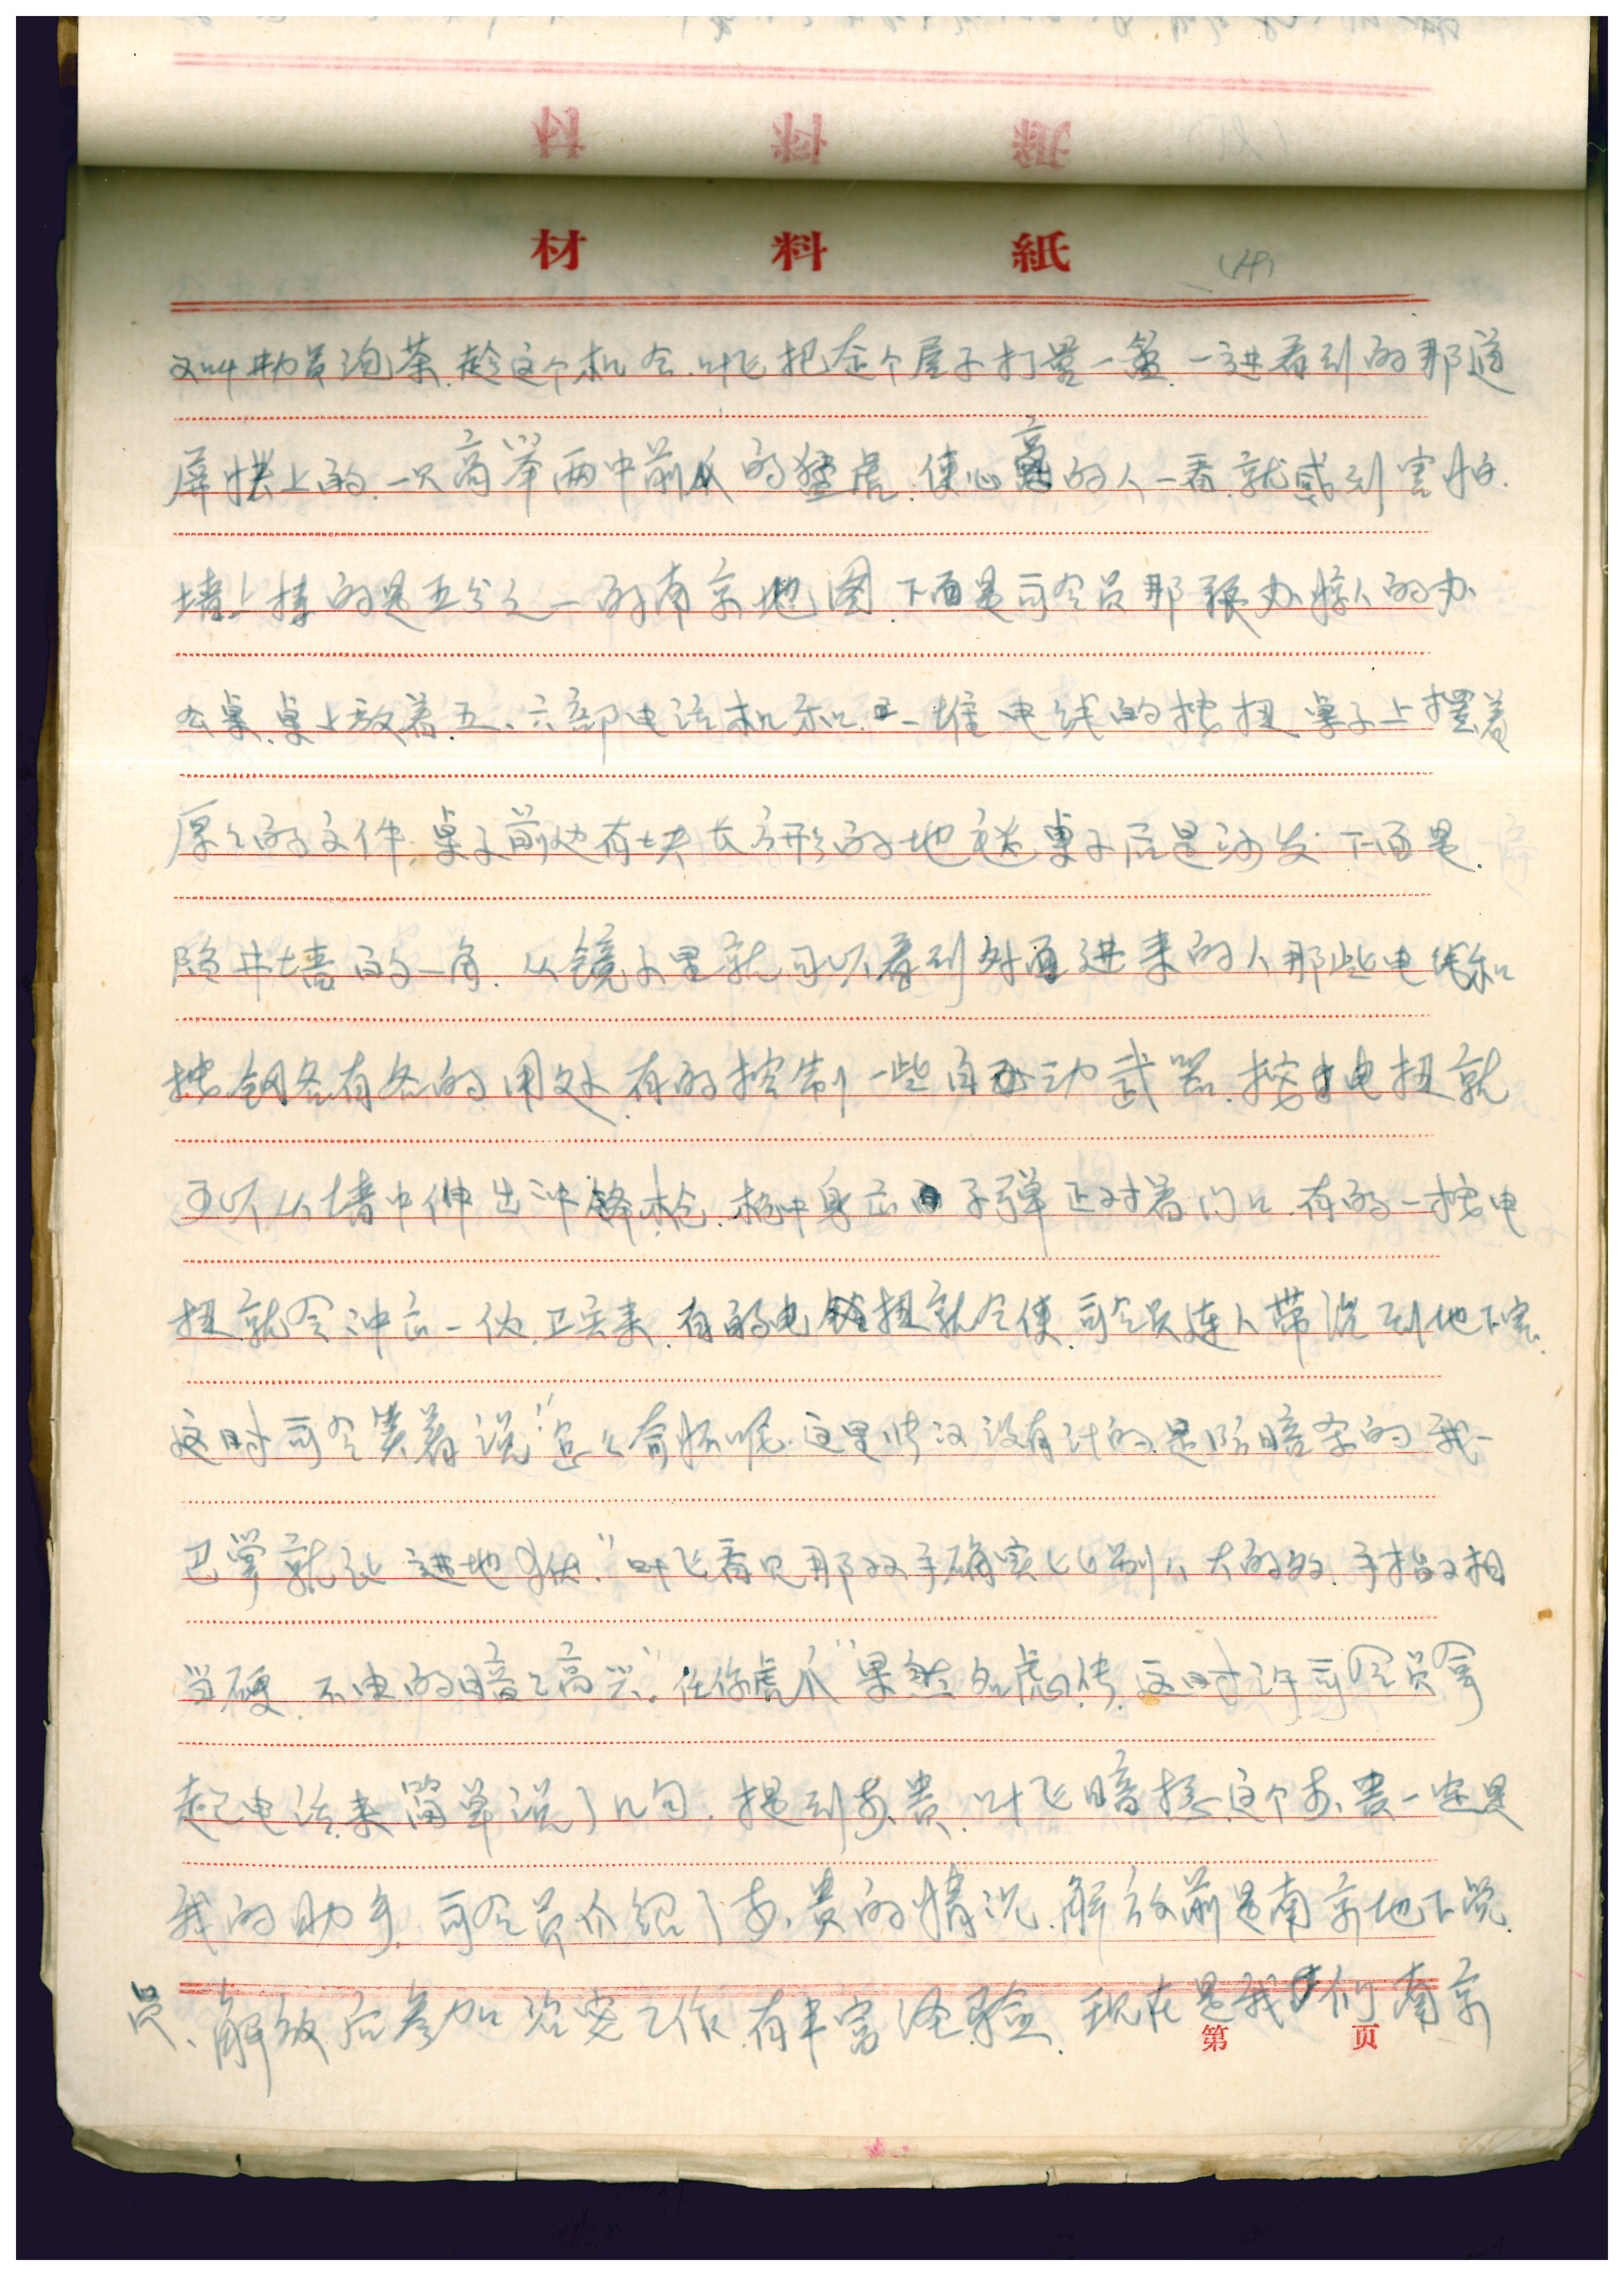 材料紙
(14)
又叫勤务员泡茶.趁这个机会.叶飞把这个屋子打量一番.一进看到的那道
屏挡上的.一只高举两中前爪的猛虎.使心虚的人一看.就感到害怕.
墙上挂的是五分之一的南京地图.下面是司令员那张办惊人的办
公桌.桌上放着五、六部电话机和.一堆电线的按扭 桌子上摆着
厚々的文件.桌子前边有块长方形的地毯 桌子后是沙发 下面是.
隐中墙的一角.从镜子里就可以看到外面进来的人 那些电线和
按钮各有各的用处.有的控制一些自动武器.按电扭就
可以从墙中伸出冲锋枪.枪中身 子弹正对着门口.有的一按电
扭.就会冲出一伙.卫兵来.有的电扭就会使.司令员连人带 到地下室.
这时司令笑着说"怎么奇怪呢.这里 没有计的.是防暗杀的 我一
巴掌就让 进地狱."叶飞看见那双手确实比别人大的多.手指又相
当硬.不由的暗々高兴."任你虎爪"果然名虎 传.这时许司令员拿
起电话来简单说了几句.提到 贵.叶飞暗想.这个 贵一定是
我的助手.司令员介绍了 贵的情况.解放前是南京地下党.
员、解放后参加治安工作.有丰富经验.现在是我们南京
第 页